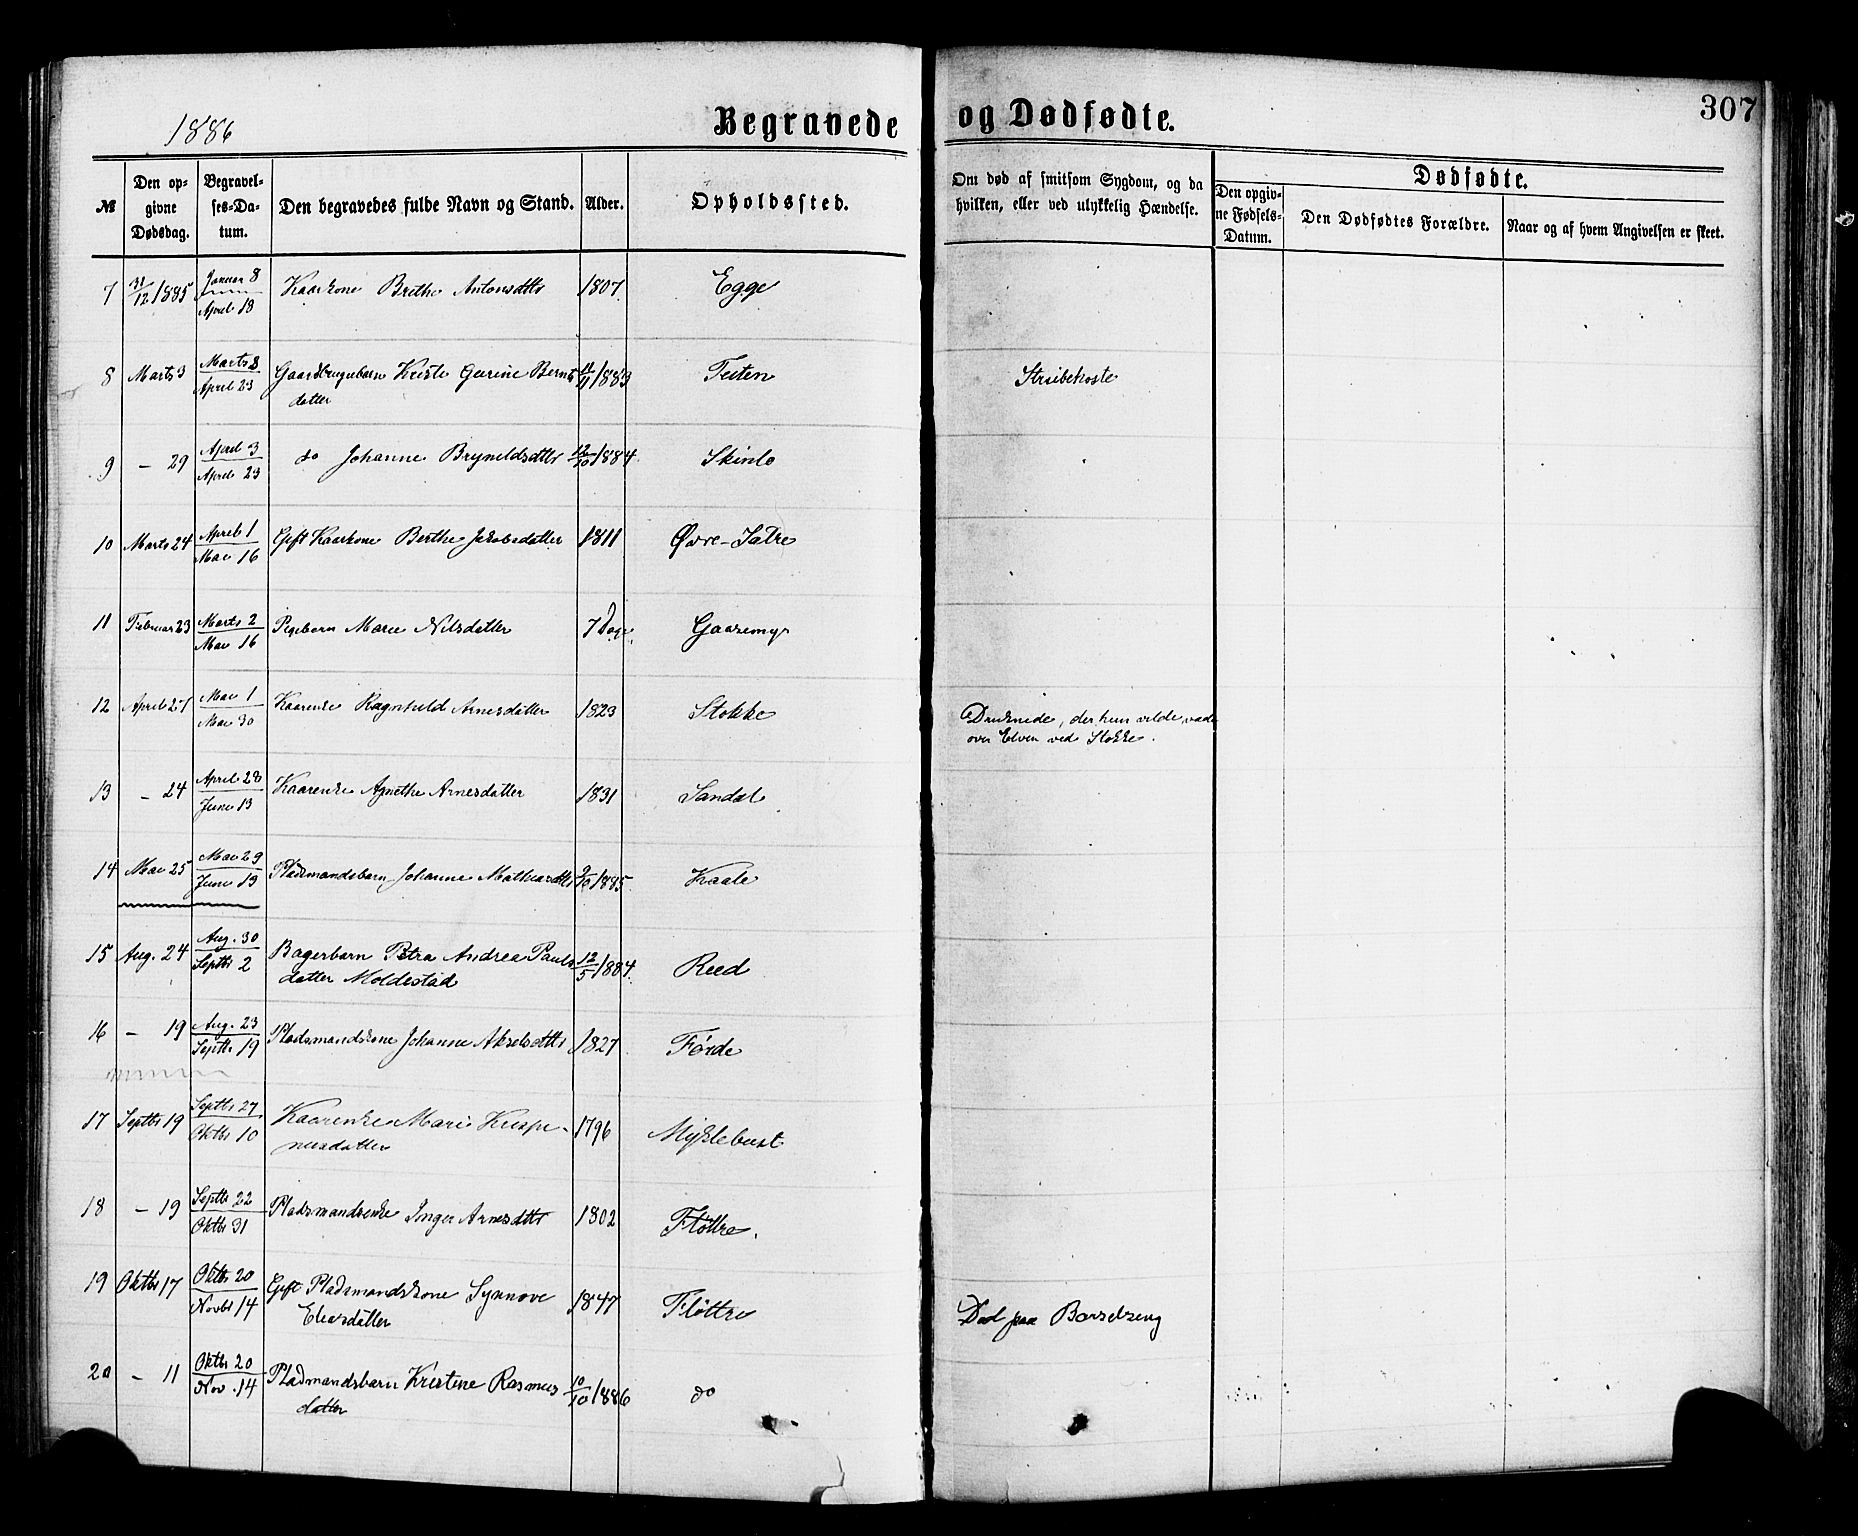 1886
Begravede og Dødfødte.
307
№ Den opgivne Dødsdag. Begravelses-Datum. Den begravedes fulde Navn og Stand. Alder. Opholdssted. Om død af smitsom Sygdom, og da hvilken, eller ved ulykkelig Hændelse. Dødfødte. Den opgivne Fødsels-Datum. Den Dødfødtes Forældre. Naar og af hvem Angivelsen er skeet.
7 31/12 1885 Januar 8 April 18 Kaarkone Brithe Antonsdttr 1807 Egge
8 Marts 3 Marts 8 April 23 Gaardbrugerbarn Kriste Gurine Bernts 11/11 1883 Teiten Strubehoste
datter
9 - 29 April 3 April 23 do Johanne Bryneldsdttr 12/10 1884 Skinlo
10 Marts 24 April 1 Mai 16 Gift Kaarkone Berthe Jakobsdatter 1811 Øvre-
11 Februar 23 Marts 2 Mai 16 Pigebarn Marie Nilsdatter 7 Dage
12 April 27 Mai 1 Mai 30 Kaarenke Ragnhild Arnesdatter 1823 Stokke Druknede, der hun vilde vade
over Elven ved Stokke.
13 - 24 April 28 Juni 13 Kaarenke Agnethe Arnesdatter 1831 Sandal
14 Mai 25 Mai 29 Juni 13 Pladsmandsbarn Johanne Mathiasdttr 9/10 1885.
15 Aug. 24 Aug. 30 Septbr 2 Bagerbarn Petra Andrea Pauls 12/5 1884. Reed
datter Moldestad
16 - 19 Aug. 23 Septbr 19 Pladsmandskone Johanne Akselsdttr 1827 Førde
17 Septbr 19 Septbr 27 Oktbr 10 Kaarenke Mari Krispi- 1796 Myklebust
nusdatter
18 - 19 Septbr 22 Oktbr 31 Pladsmandsenke Inger Arnesdttr 1802 Fløttre.
19 Oktbr 17 Oktbr 20 Novbr 14 Gift Pladsmandskone Synnove 1847 Fløttre Død paa Barselseng
Eliasdatter
20 - 11 Oktbr 20 Nov. 14 Pladmandsbarn Kristine Rasmus 10/10 1886 do
datter